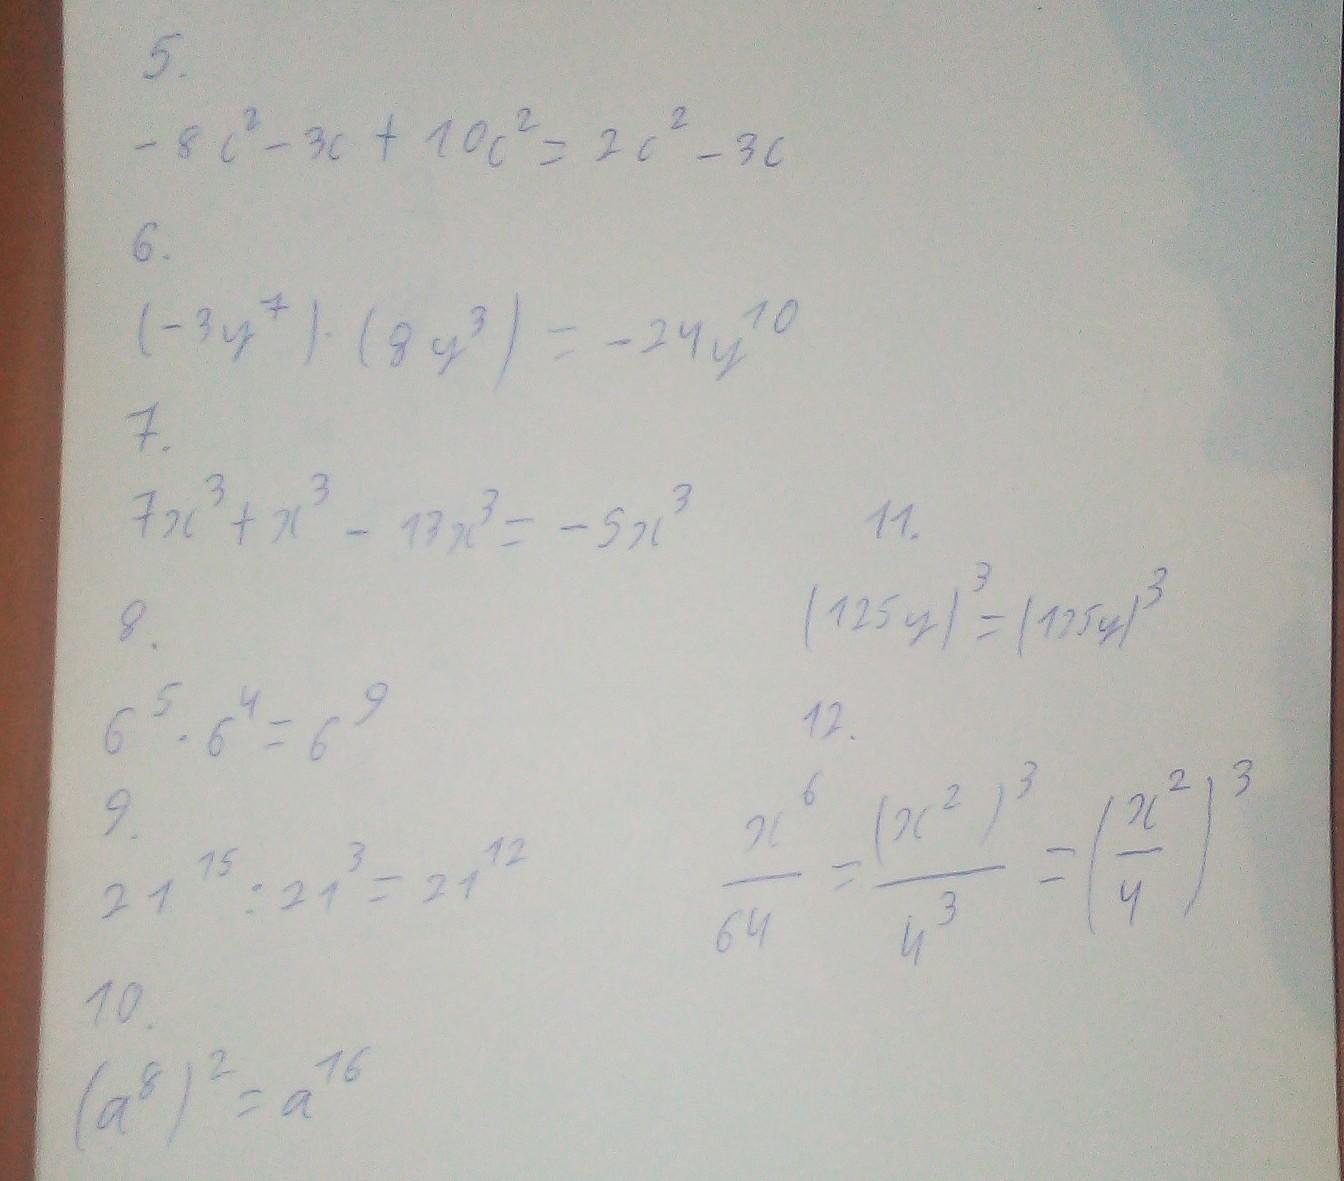 5.
-8c² - 3c + 10c² = 2c² - 3c
6.
(-3y⁷) · (8y³) = -24y¹⁰
7.
7x³ + x³ - 13x³ = -5x³
8.
6⁵ · 6⁴ = 6⁹
9.
21¹⁵ : 21³ = 21¹²
10.
(a⁸)² = a¹⁶
11.
(125y)³ = (125y)³
12.
x⁶/64 = (x²)³/4³ = (x²/4)³